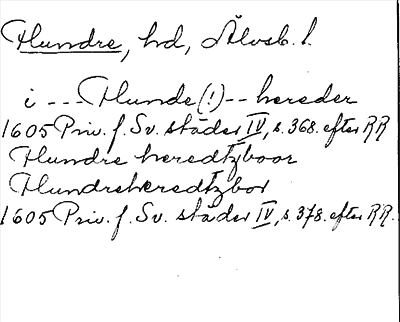 Hundre, hd, Älvsb. l.
i --- Hunde(!)-- hereder
1605 Priv. f. Sv. städer IV, s. 368. efter RR
Hundre heredtzboor
Hundreheredtzbor
1605 Priv. f. Sv. städer IV, s. 378. efter RR.